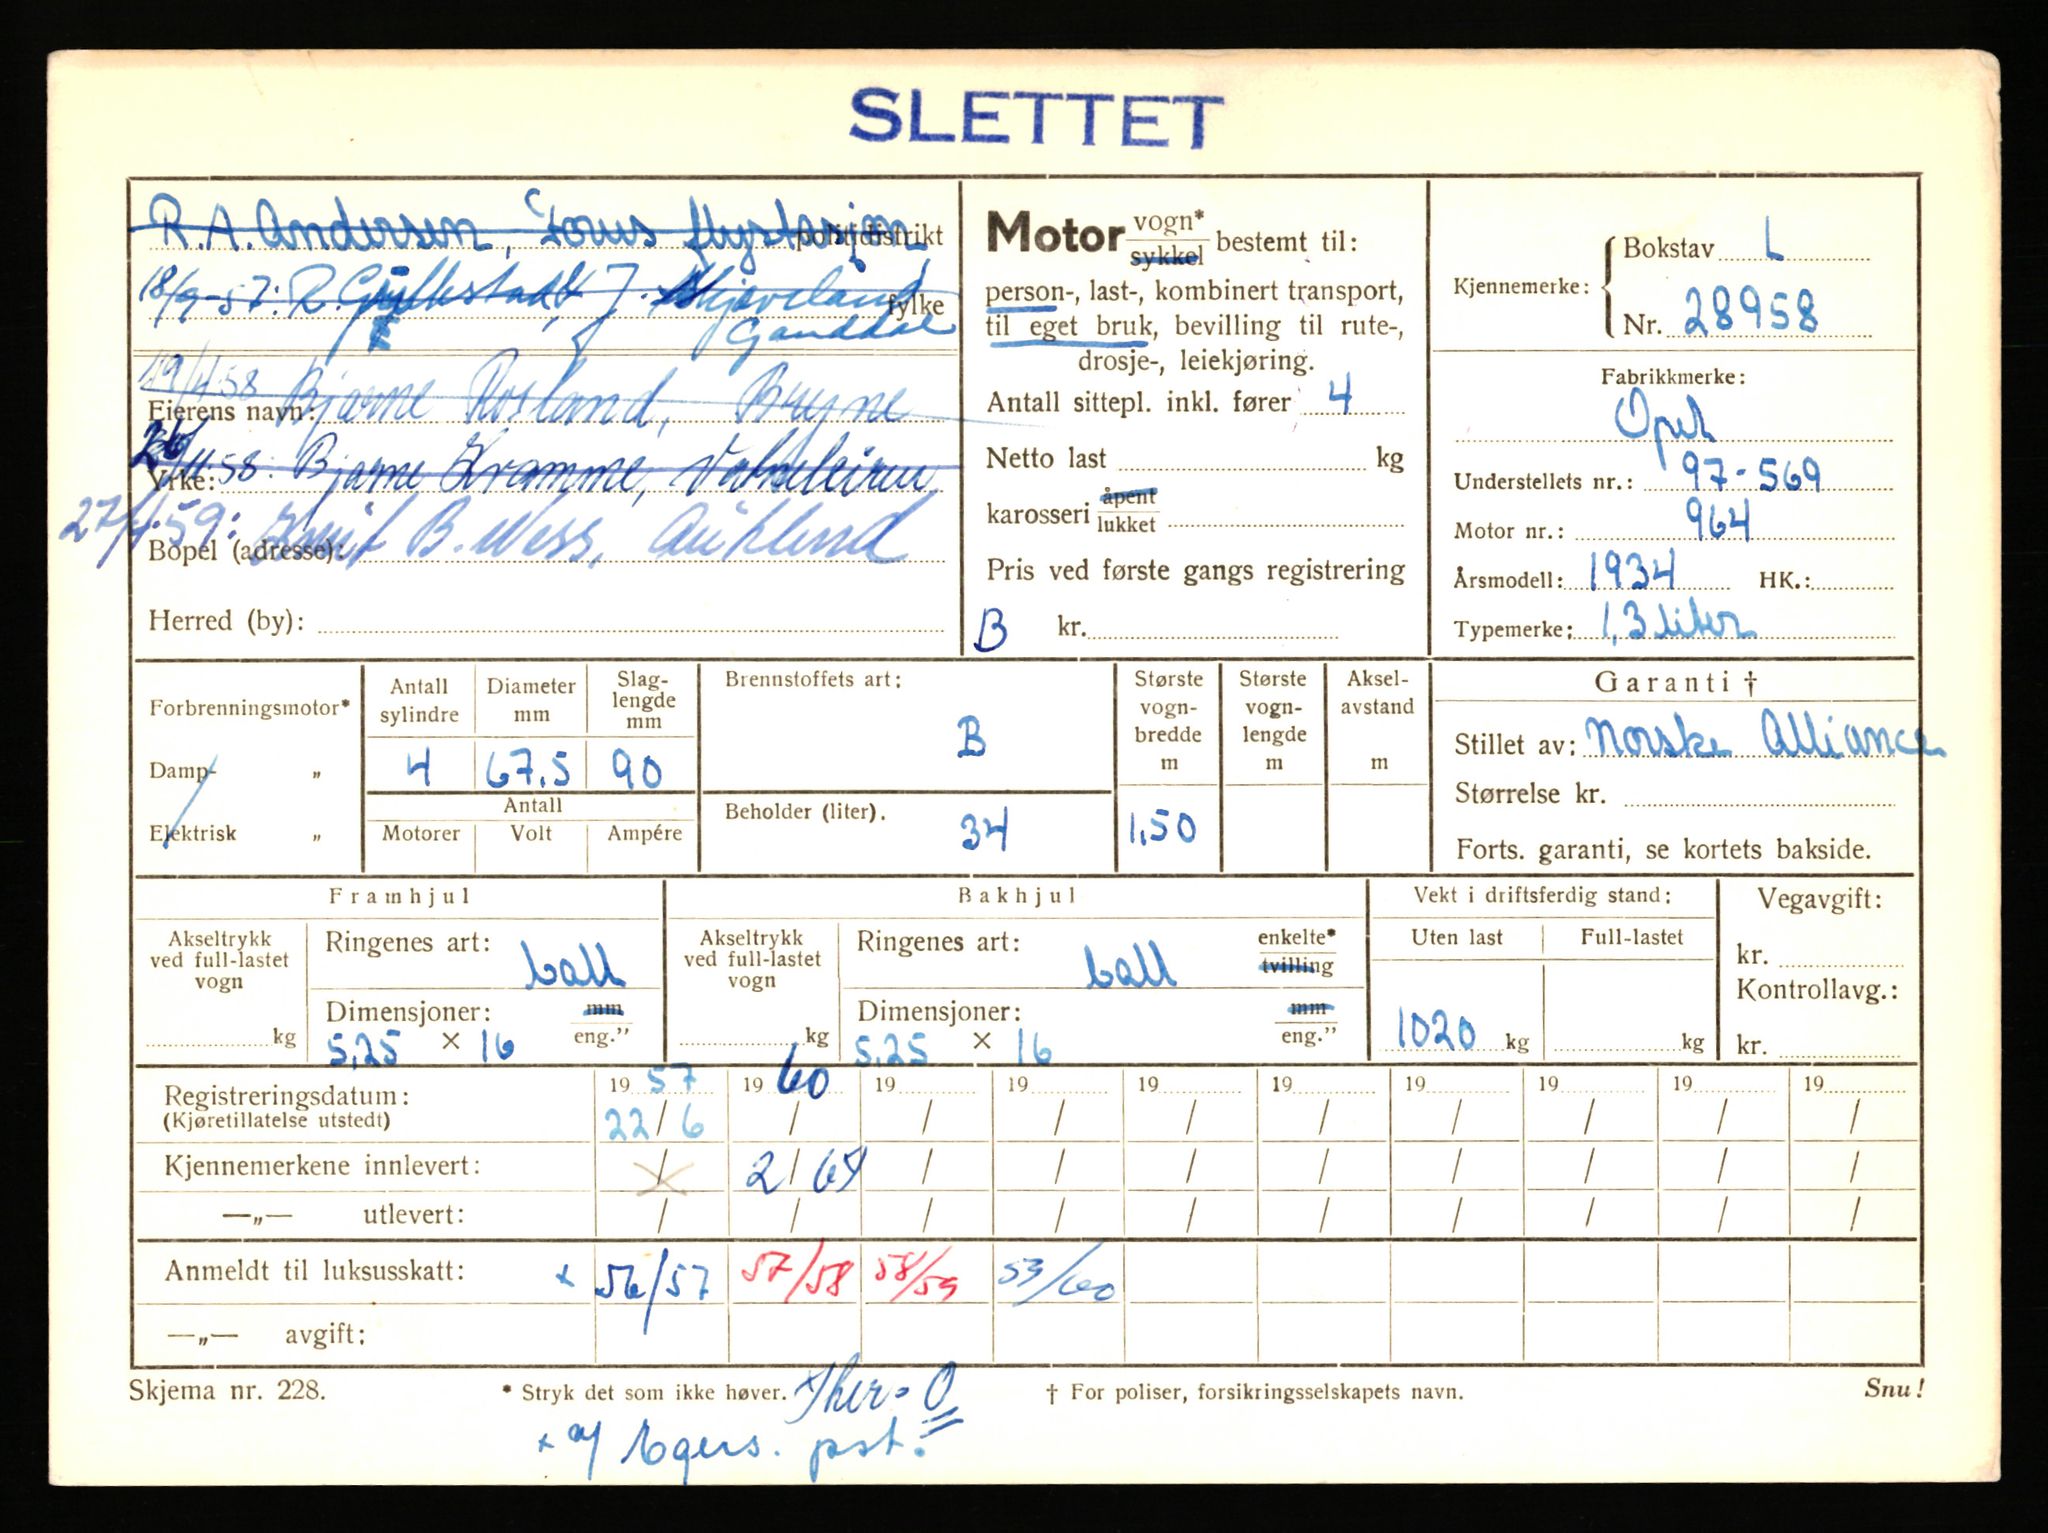 SLETTET
R. A. Andersen, Forus flystasjon politidistrikt
18/9-57: R. J. Skjæveland fylke
Ganddal
19/4 58 Bjarne Rosland, Bryne
Eierens navn:
26/11 58: Bjarne Kramme,
Yrke:
27/ 59: B. Ness, Aukland
Bopel (adresse):
Herred (by):
Motor vogn* / sykkel bestemt til:
person-, last-, kombinert transport,
til eget bruk, bevilling til rute-,
drosje-, leiekjøring.
Antall sittepl. inkl. fører 4
Netto last kg
karosseri åpent / lukket
Pris ved første gangs registrering
B kr.
Kjennemerke: Bokstav L
Nr. 28958
Fabrikkmerke:
Opel
Understellets nr.: 97-569
Motor nr.: 964
Årsmodell: 1934 HK.:
Typemerke: 1,3 liter
Forbrenningsmotor*
Damp- „
Elektrisk „
Antall sylindre 4
Diameter mm 67,5
Slag-lengde mm 90
Antall
Motorer Volt Ampére
Brennstoffets art: B
Beholder (liter). 34
Største vogn-bredde m 1,50
Største vogn-lengde m
Aksel-avstand m
Garanti †
Stillet av: Norske Alliance
Størrelse kr.
Forts. garanti, se kortets bakside.
Framhjul
Akseltrykk ved full-lastet vogn kg
Ringenes art: ball
Dimensjoner: mm / eng."
5,25 × 16
Bakhjul
Akseltrykk ved full-lastet vogn kg
Ringenes art: ball enkelte* / tvilling
Dimensjoner: mm / eng."
5,25 × 16
Vekt i driftsferdig stand:
Uten last Full-lastet
1020 kg kg
Vegavgift:
kr.
Kontrollavg.:
kr.
Registreringsdatum: 19 57 19 60 19 19 19 19 19 19 19 19
(Kjøretillatelse utstedt) 22/6 / / / / / / / / /
Kjennemerkene innlevert: / 2/ / / / / / / / /
—„— utlevert: / / / / / / / / / /
Anmeldt til luksusskatt: x 56/57 57/58 58/59 59/60
—„— avgift:
Skjema nr. 228. * Stryk det som ikke høver. † For poliser, forsikringsselskapets navn. Snu!
x af Egers. pst.